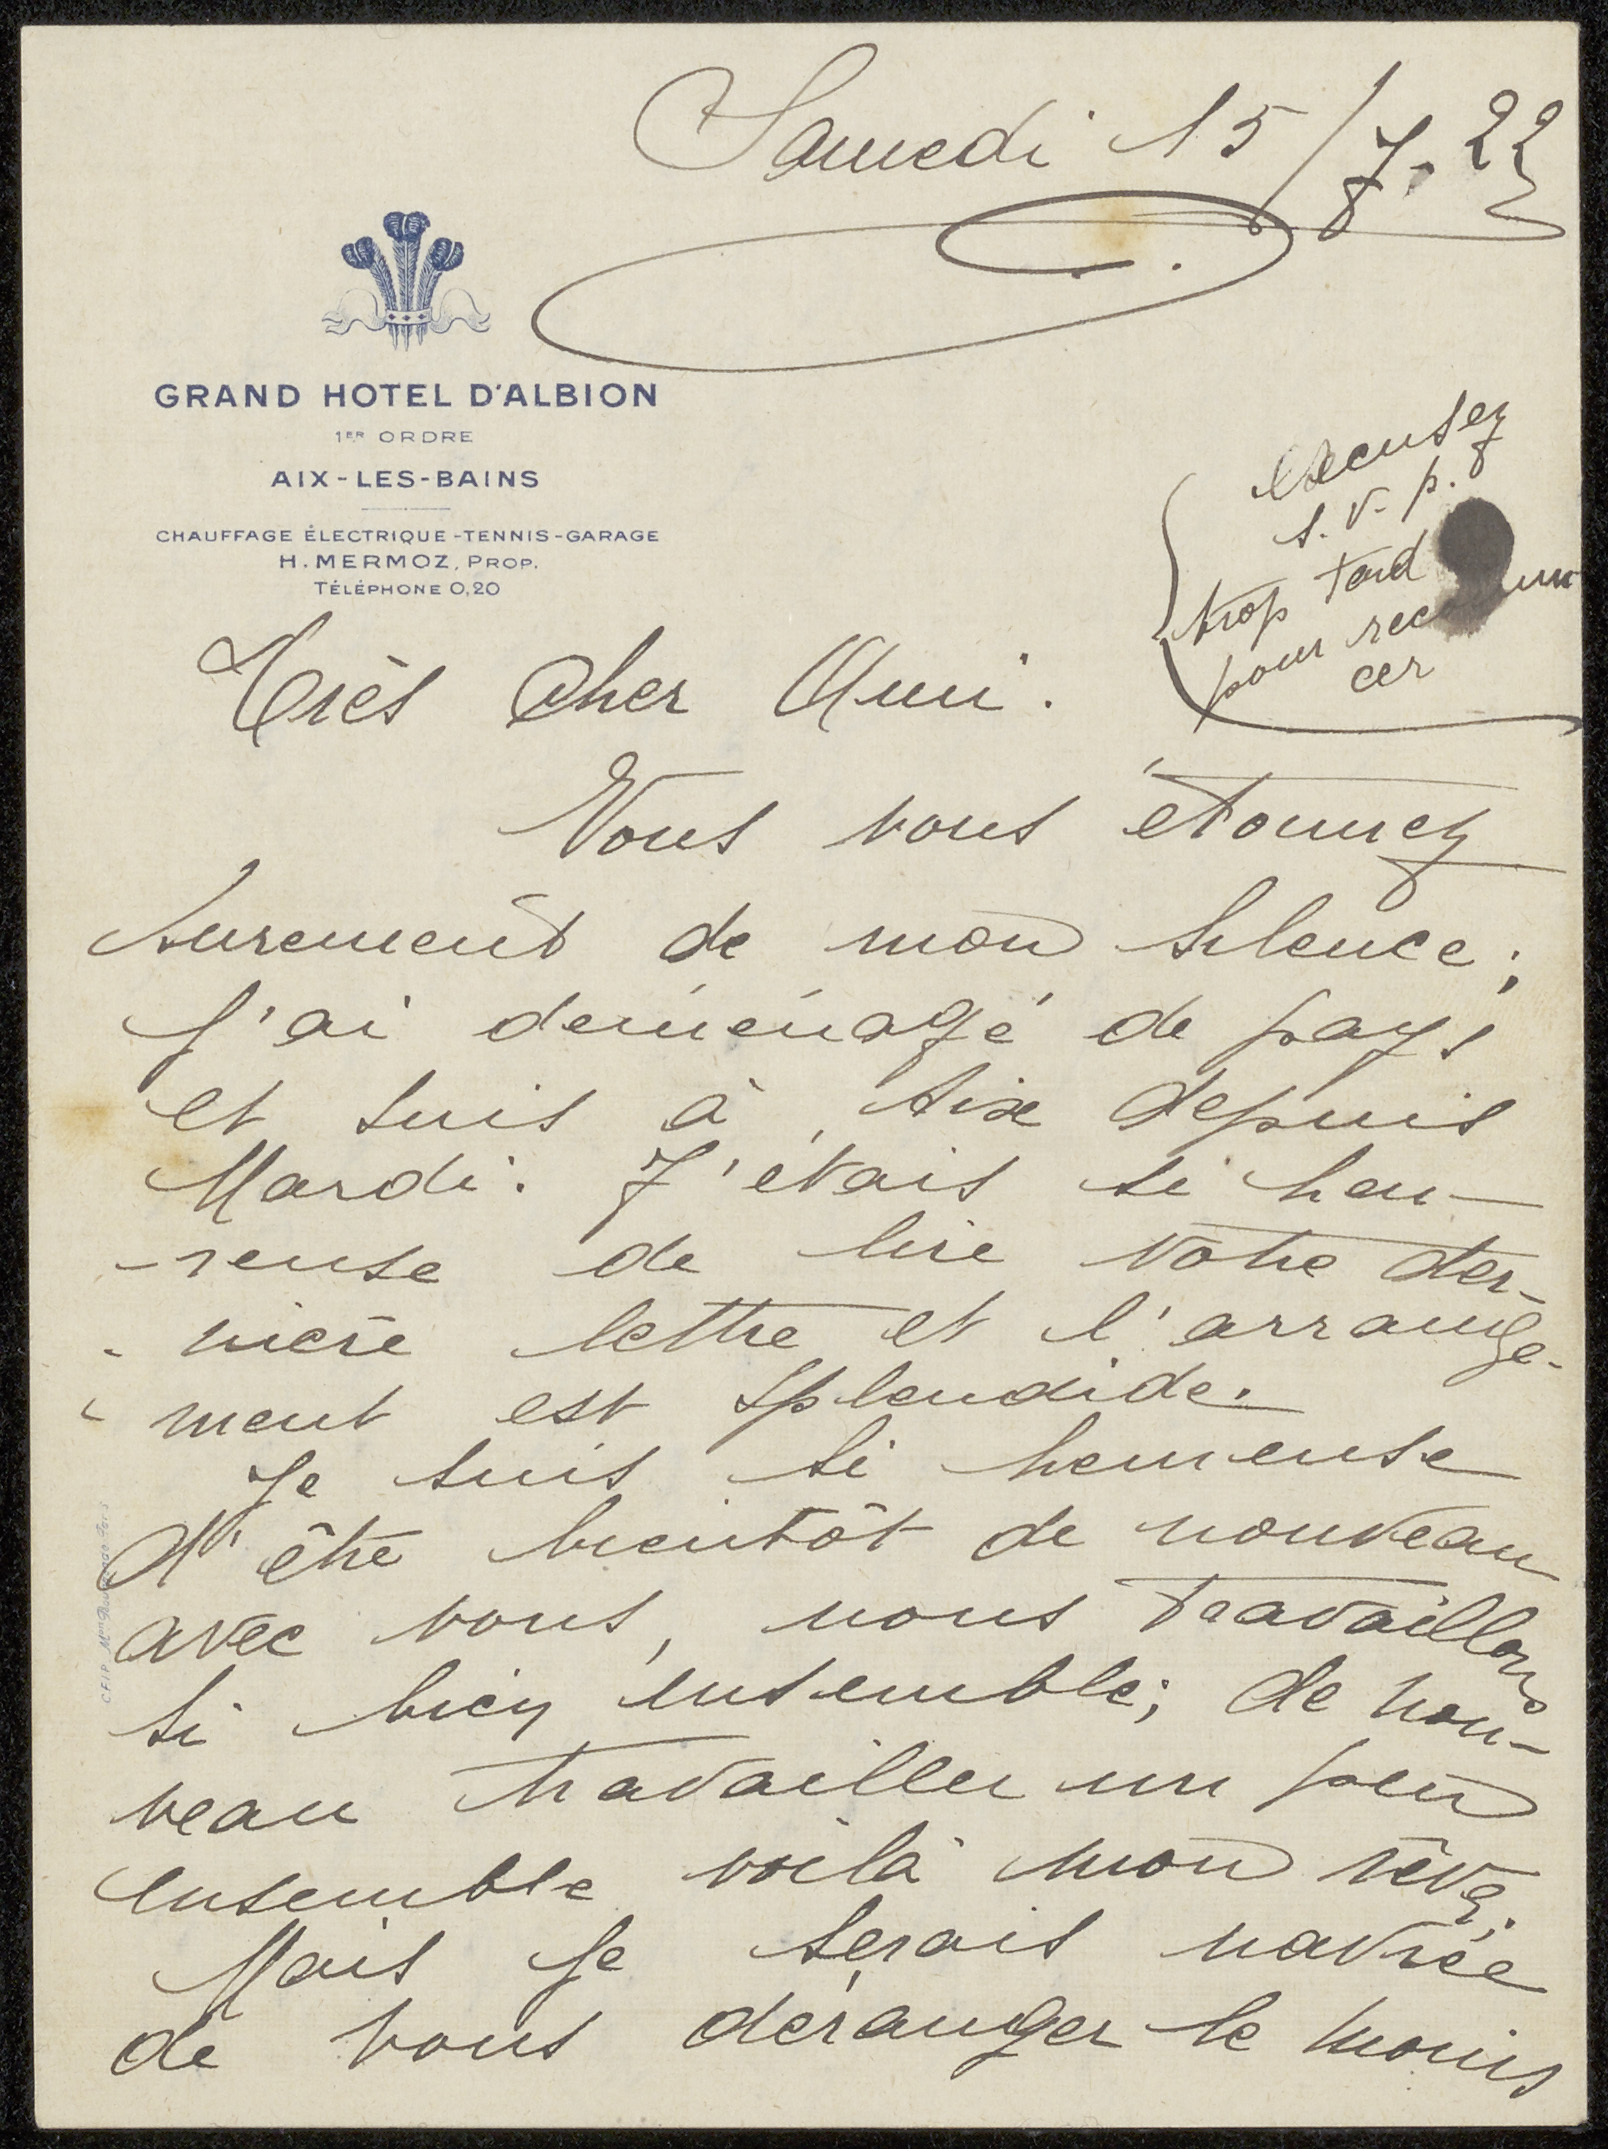 Samedi 15/7. 22
GRAND HOTEL D'ALBION
1ER ORDRE
AIX-LES-BAINS
CHAUFFAGE ÉLECTRIQUE-TENNIS-GARAGE
H. MERMOZ, PROP.
TÉLÉPHONE 0,20
excusez
s. v. p.
trop tard
pour recommen
cer
Très cher Ami.
Vous vous étonnez
surement de mon silence;
j'ai deménagé de pays
et suis à Aix depuis
Mardi. J'étais si heu-
-reuse de lire votre der-
-nière lettre et l'arrange-
-ment est splendide.
Je suis si heureuse
d'être bientôt de nouveau
avec vous, nous travaillons
si bien ensemble; de nou-
veau travailler un peu
ensemble voilà mon rêve.
Mais je serais navrée
de vous déranger le moins